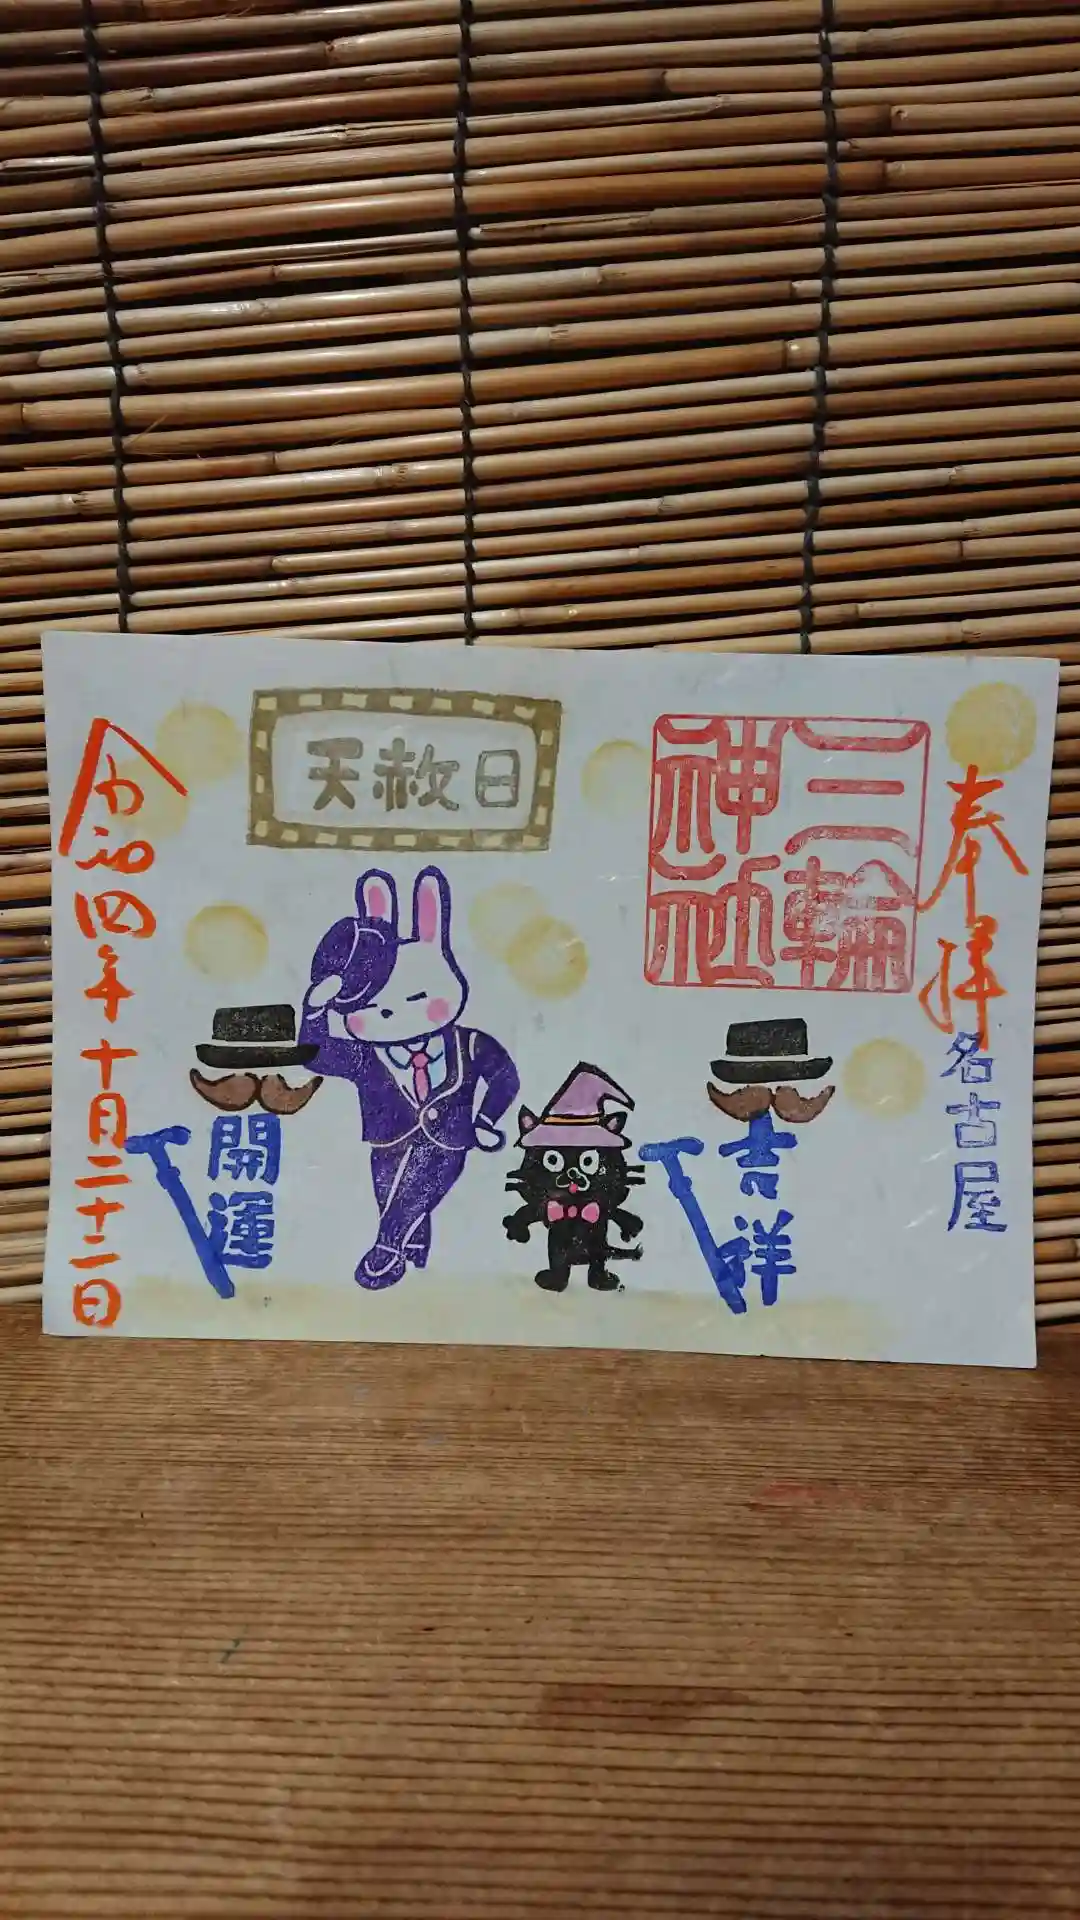 奉拝
名古屋
三輪
神社
吉祥
天赦日
開運
令和四年十月二十二日